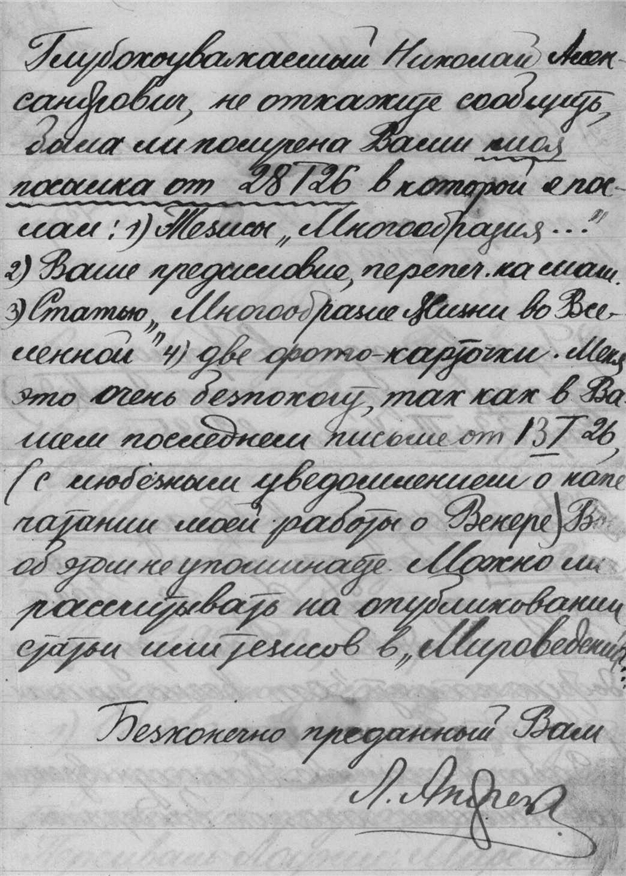 Глубокоуважаемый Николай Алек-
сандрович, не откажите сообщить,
была ли получена Вами моя
посылка от 28 I 26 в которой я пос-
лал: 1) Тезисы „Многообразия..."
2) Ваше предисловие, перепеч. на маш.
3) Статью „Многообразие Жизни во Все-
ленной" 4) две фото-карточки. Меня
это очень безпокоит, так как в Ва-
шем последнем письме от 13 I 26,
(с любезным уведомлением о напе
чатании моей работы о Венере) Вы
об этом не упоминаете. Можно ли
рассчитывать на опубликовании
статьи или тезисов в „Мироведении"?
Безконечно преданный Вам
Л. Андренко